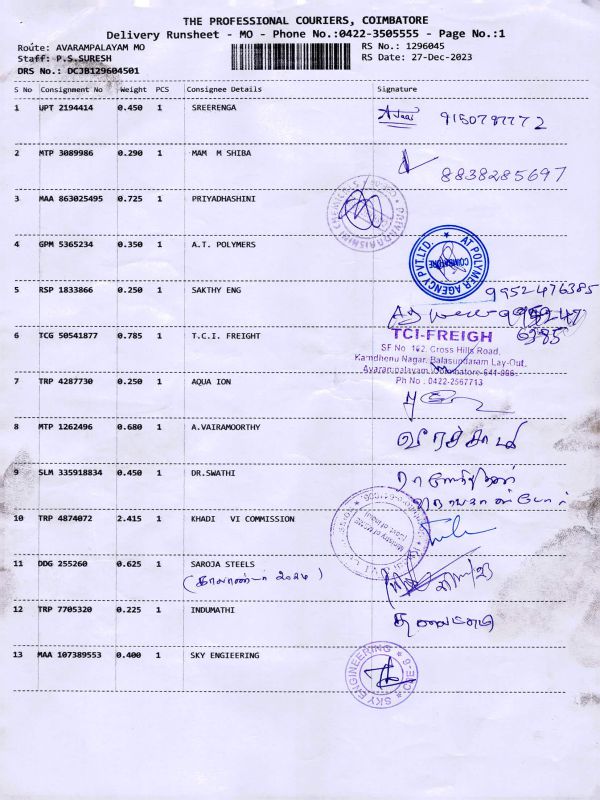 THE PROFESSIONAL COURIERS, COIMBATORE
Delivery Runsheet - MO - Phone No.:0422-3505555 - Page No.:1
Route: AVARAMPALAYAM MO RS No.: 1296045
Staff: P.S.SURESH RS Date: 27-Dec-2023
DRS No.: DCJB129604501
S No Consignment No Weight PCS Consignee Details Signature
1 UPT 2194414 0.450 1 SREERENGA
2 MTP 3089986 0.290 1 MAM M SHIBA 8838285697
3 MAA 863025495 0.725 1 PRIYADHASHINI
4 GPM 5365234 0.350 1 A.T. POLYMERS
AT POLYMER AGENCY PVT.LTD.
COIMBATORE
5 RSP 1833866 0.250 1 SAKTHY ENG 9952476385
6 TCG 50541877 0.785 1 T.C.I. FREIGHT 6385
TCI-FREIGH
SF No 162, Cross Hills Road,
Kamdhenu Nagar, Balasundaram Lay-Out,
Avarampalayam, Coimbatore-641 006
Ph No : 0422-2567713
7 TRP 4287730 0.250 1 AQUA ION
8 MTP 1262496 0.680 1 A.VAIRAMOORTHY
9 SLM 335918834 0.450 1 DR.SWATHI
10 TRP 4874072 2.415 1 KHADI VI COMMISSION
Ministry of MSME
Govt. of India
11 DDG 255260 0.625 1 SAROJA STEELS
12 TRP 7705320 0.225 1 INDUMATHI
13 MAA 107389553 0.400 1 SKY ENGIEERING
SKY ENGINEERING